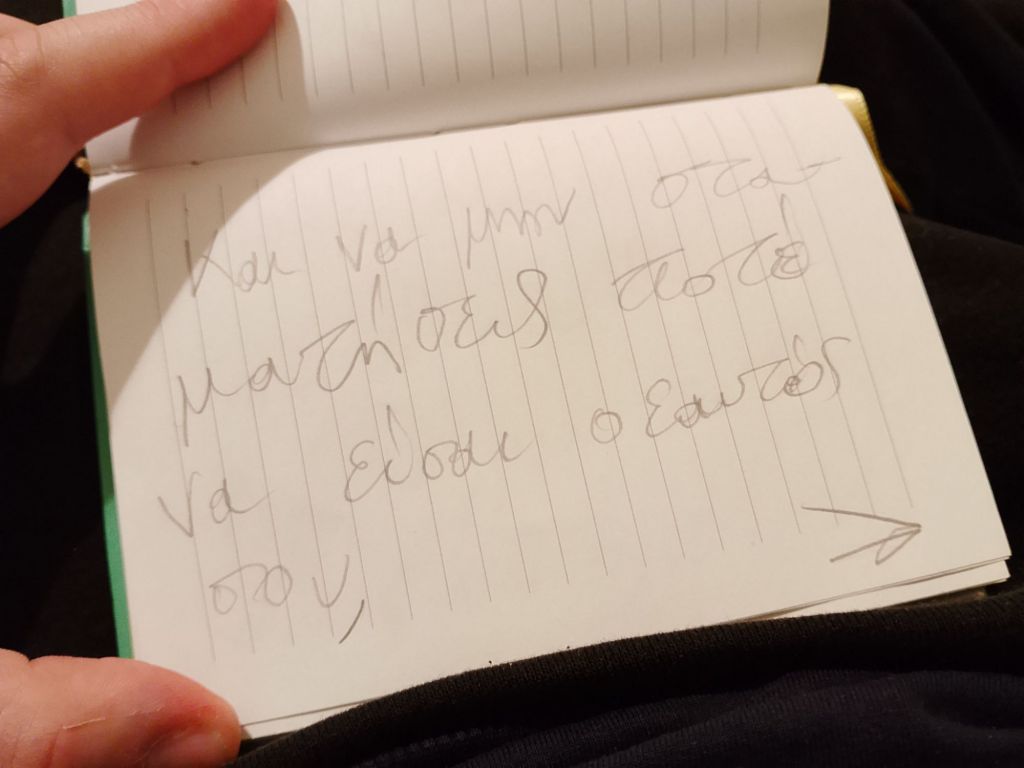 Και να μην στα-
ματήσεις ποτέ
να είσαι ο εαυτός
σου,